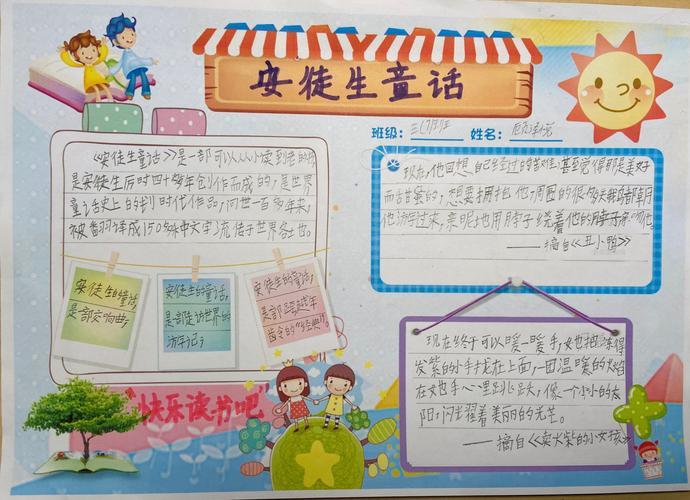 安徒生童话
班级: 三(7)班 姓名:
《安徒生童话》是一部可以从小读到老的书
是安徒生历时四十多年创作而成的,是世界
童话史上的划时代作品,问世一百多年来,
被翻译成150多种文字,流传于世界各地。
安徒生的童话,
是一部交响曲;
安徒生的童话,
是一部走访世界的
游记;
安徒生的童话,
现在,他回想自己经过的苦难,甚至觉得那是美好
而甜蜜的,想要拥抱他,周围的很多天鹅都朝
他游过来,亲昵地用脖子绕着他的脖子
——摘自《丑小鸭》
现在终于可以暖一暖手,女也把冻得
发紫的小手拢在上面,一团温暖的火焰
在她手心里跳跃,像一个小小的太
阳,闪耀着美丽的光芒。
——摘自《卖火柴的小女孩》
"快乐读书吧"